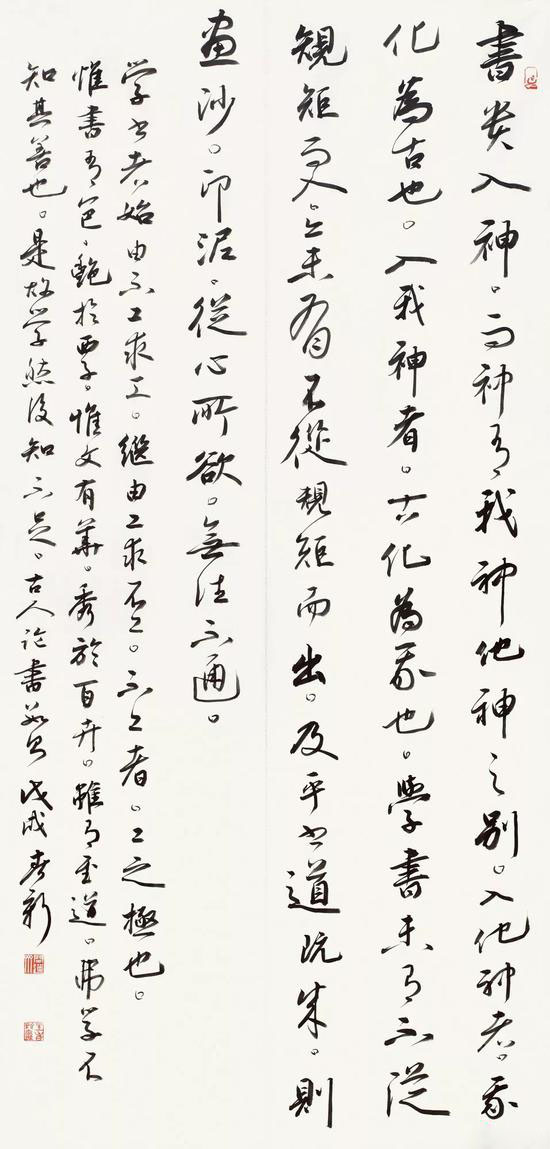 書貴入神。而神有我神他神之別。入他神者。我
化為古也。入我神者。古化為我也。學書未有不從
規矩而入。亦未有不從規矩而出。及乎書道既成。則
畫沙。印泥。從心所欲。無法不通。
学書者始由不工求工。繼由工求不工。不工者。工之極也。
惟書有色、艷於西子。惟文有華。秀於百卉。雖有至道。弗学不
知其善也。是故学然後知不足。古人論書 戊戌 春新